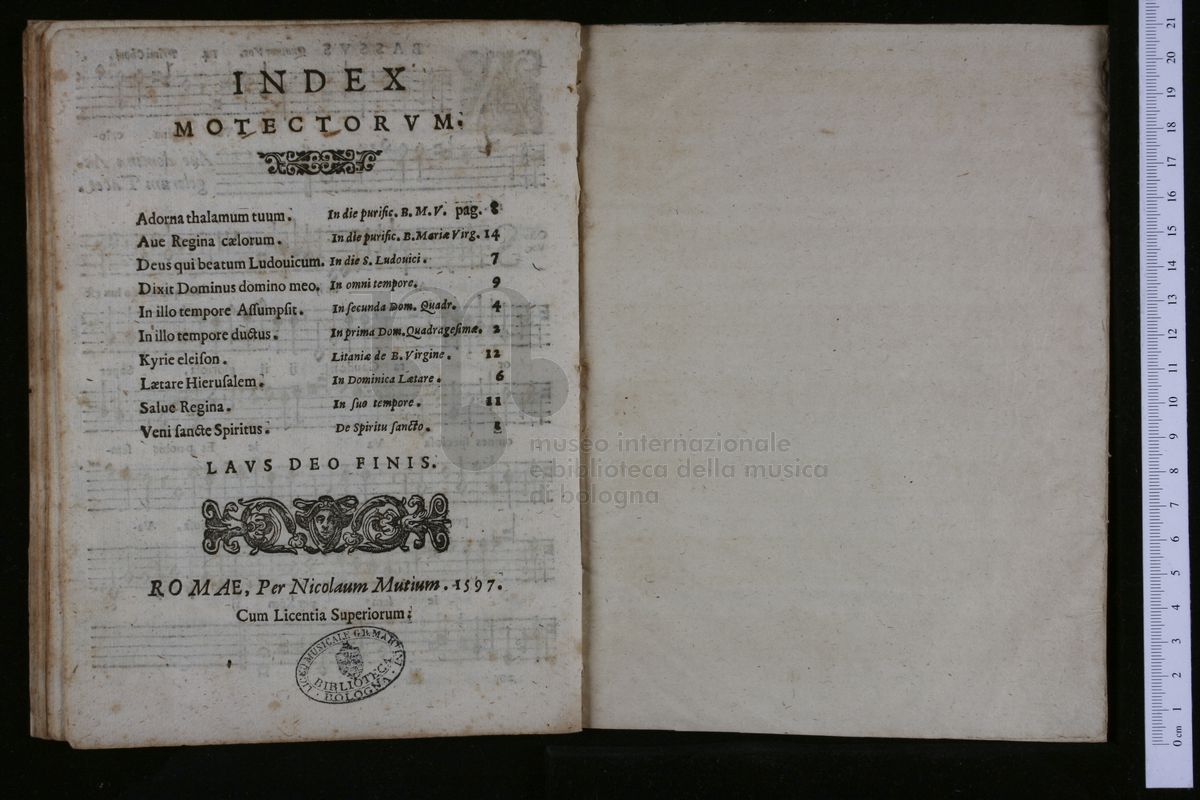 INDEX
MOTECTORVM.
Adorna thalamum tuum. In die purific. B. M. V. pag. 8
Aue Regina cælorum. In die purific. B. Mariæ Virg. 14
Deus qui beatum Ludouicum. In die S. Ludouici. 7
Dixit Dominus domino meo. In omni tempore. 9
In illo tempore Aſſumpſit. In ſecunda Dom. Quadr. 4
In illo tempore ductus. In prima Dom. Quadrageſimæ. 2
Kyrie eleiſon. Litaniæ de B. Virgine. 12
Lætare Hieruſalem. In Dominica Lætare. 6
Salue Regina. In ſuo tempore. 11
Veni ſancte Spiritus. De Spiritu ſancto.
LAVS DEO FINIS.
ROMAE, Per Nicolaum Mutium. 1597.
Cum Licentia Superiorum.
LICEO MUSICALE G.B. MARTINI
BIBLIOTECA
BOLOGNA
museo internazionale
e biblioteca della musica
di bologna
0 cm 1 2 3 4 5 6 7 8 9 10 11 12 13 14 15 16 17 18 19 20 21